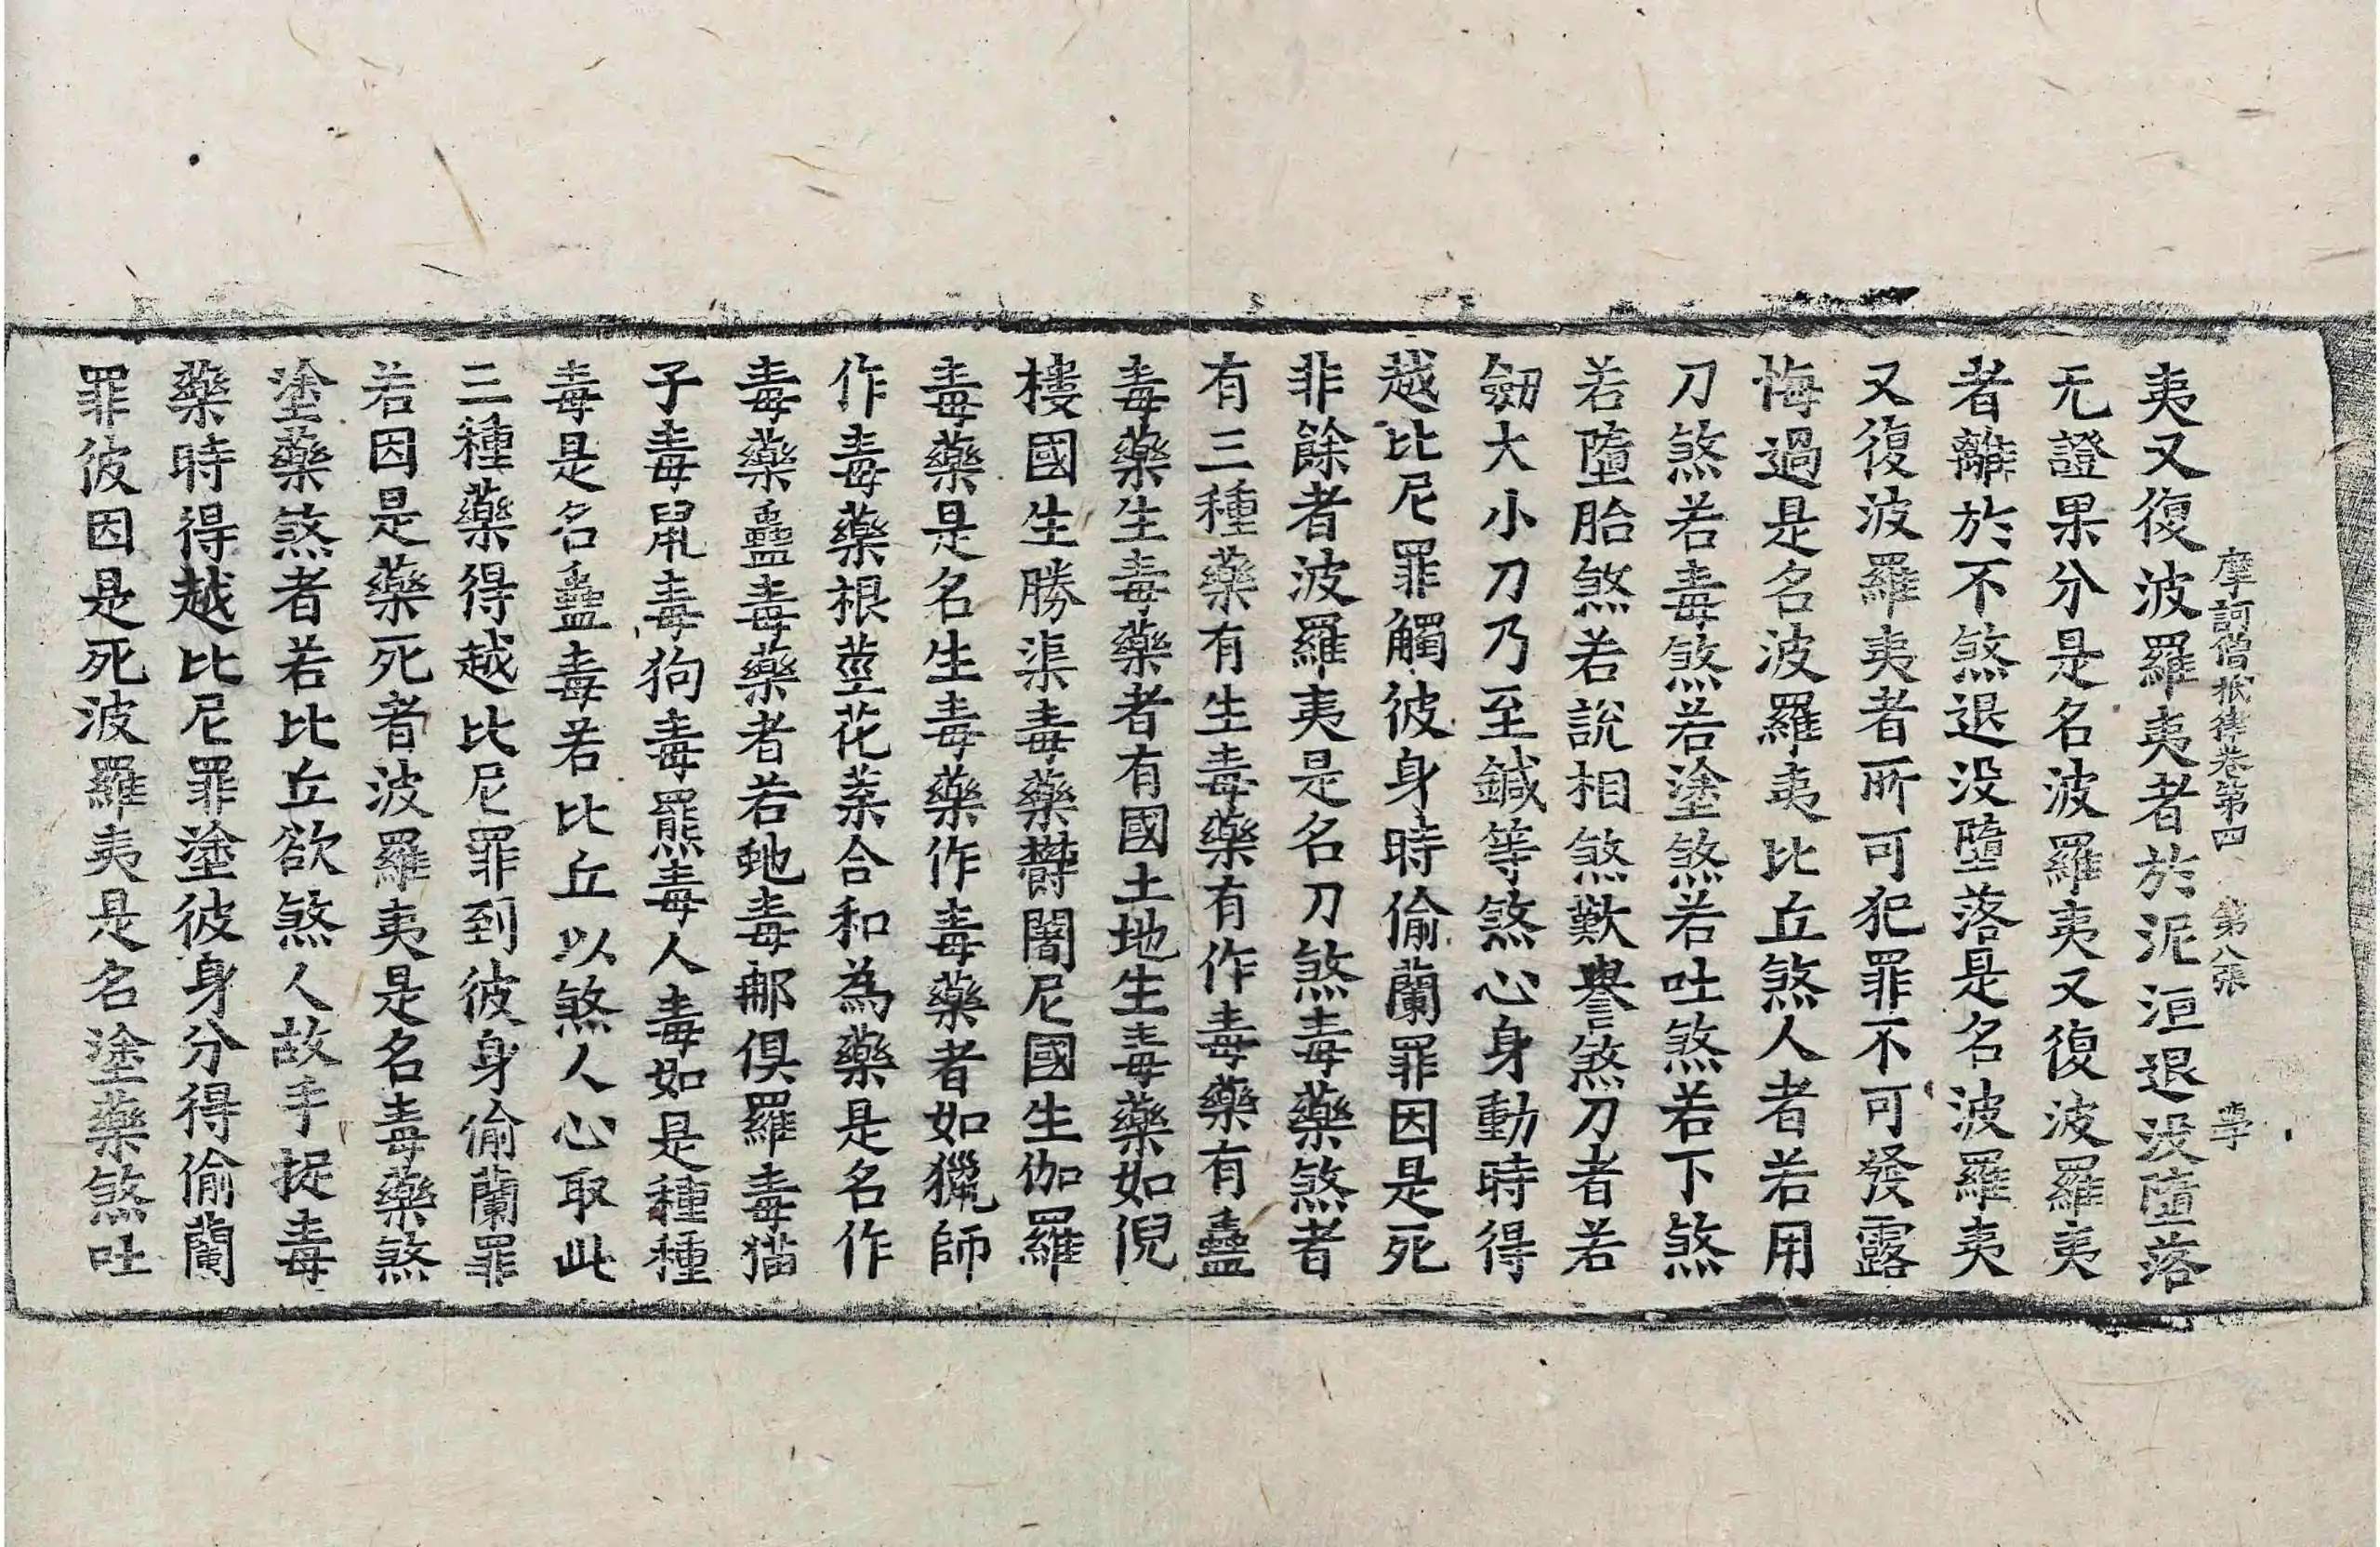 摩訶僧祇律卷第四 第八張
夷又復波羅夷者於泥洹退没墮落
无證果分是名波羅夷又復波羅夷
者離於不煞退没墮落是名波羅夷
又復波羅夷者所可犯罪不可發露
悔過是名波羅夷比丘煞人者若用
刀煞若毒煞若塗煞若吐煞若下煞
若墮胎煞若說相煞歎譽煞刀者若
劒大小刀乃至鍼等煞心身動時得
越比尼罪觸彼身時偷蘭罪因是死
非餘者波羅夷是名刀煞毒藥煞者
有三種藥有生毒藥有作毒藥有蠱
毒藥生毒藥者有國土地生毒藥如倪
樓國生勝渠毒藥欝闍尼國生伽羅
毒藥是名生毒藥作毒藥者如獵師
作毒藥根莖花葉合和為藥是名作
毒藥蠱毒藥者若虵毒那俱羅毒猫
子毒鼠毒狗毒羆毒人毒如是種種
毒是名蠱毒若比丘以煞人心取此
三種藥得越比尼罪到彼身偷蘭罪
若因是藥死者波羅夷是名毒藥煞
塗藥煞者若比丘欲煞人故手捉毒
藥時得越比尼罪塗彼身分得偷蘭
罪彼因是死波羅夷是名塗藥煞吐